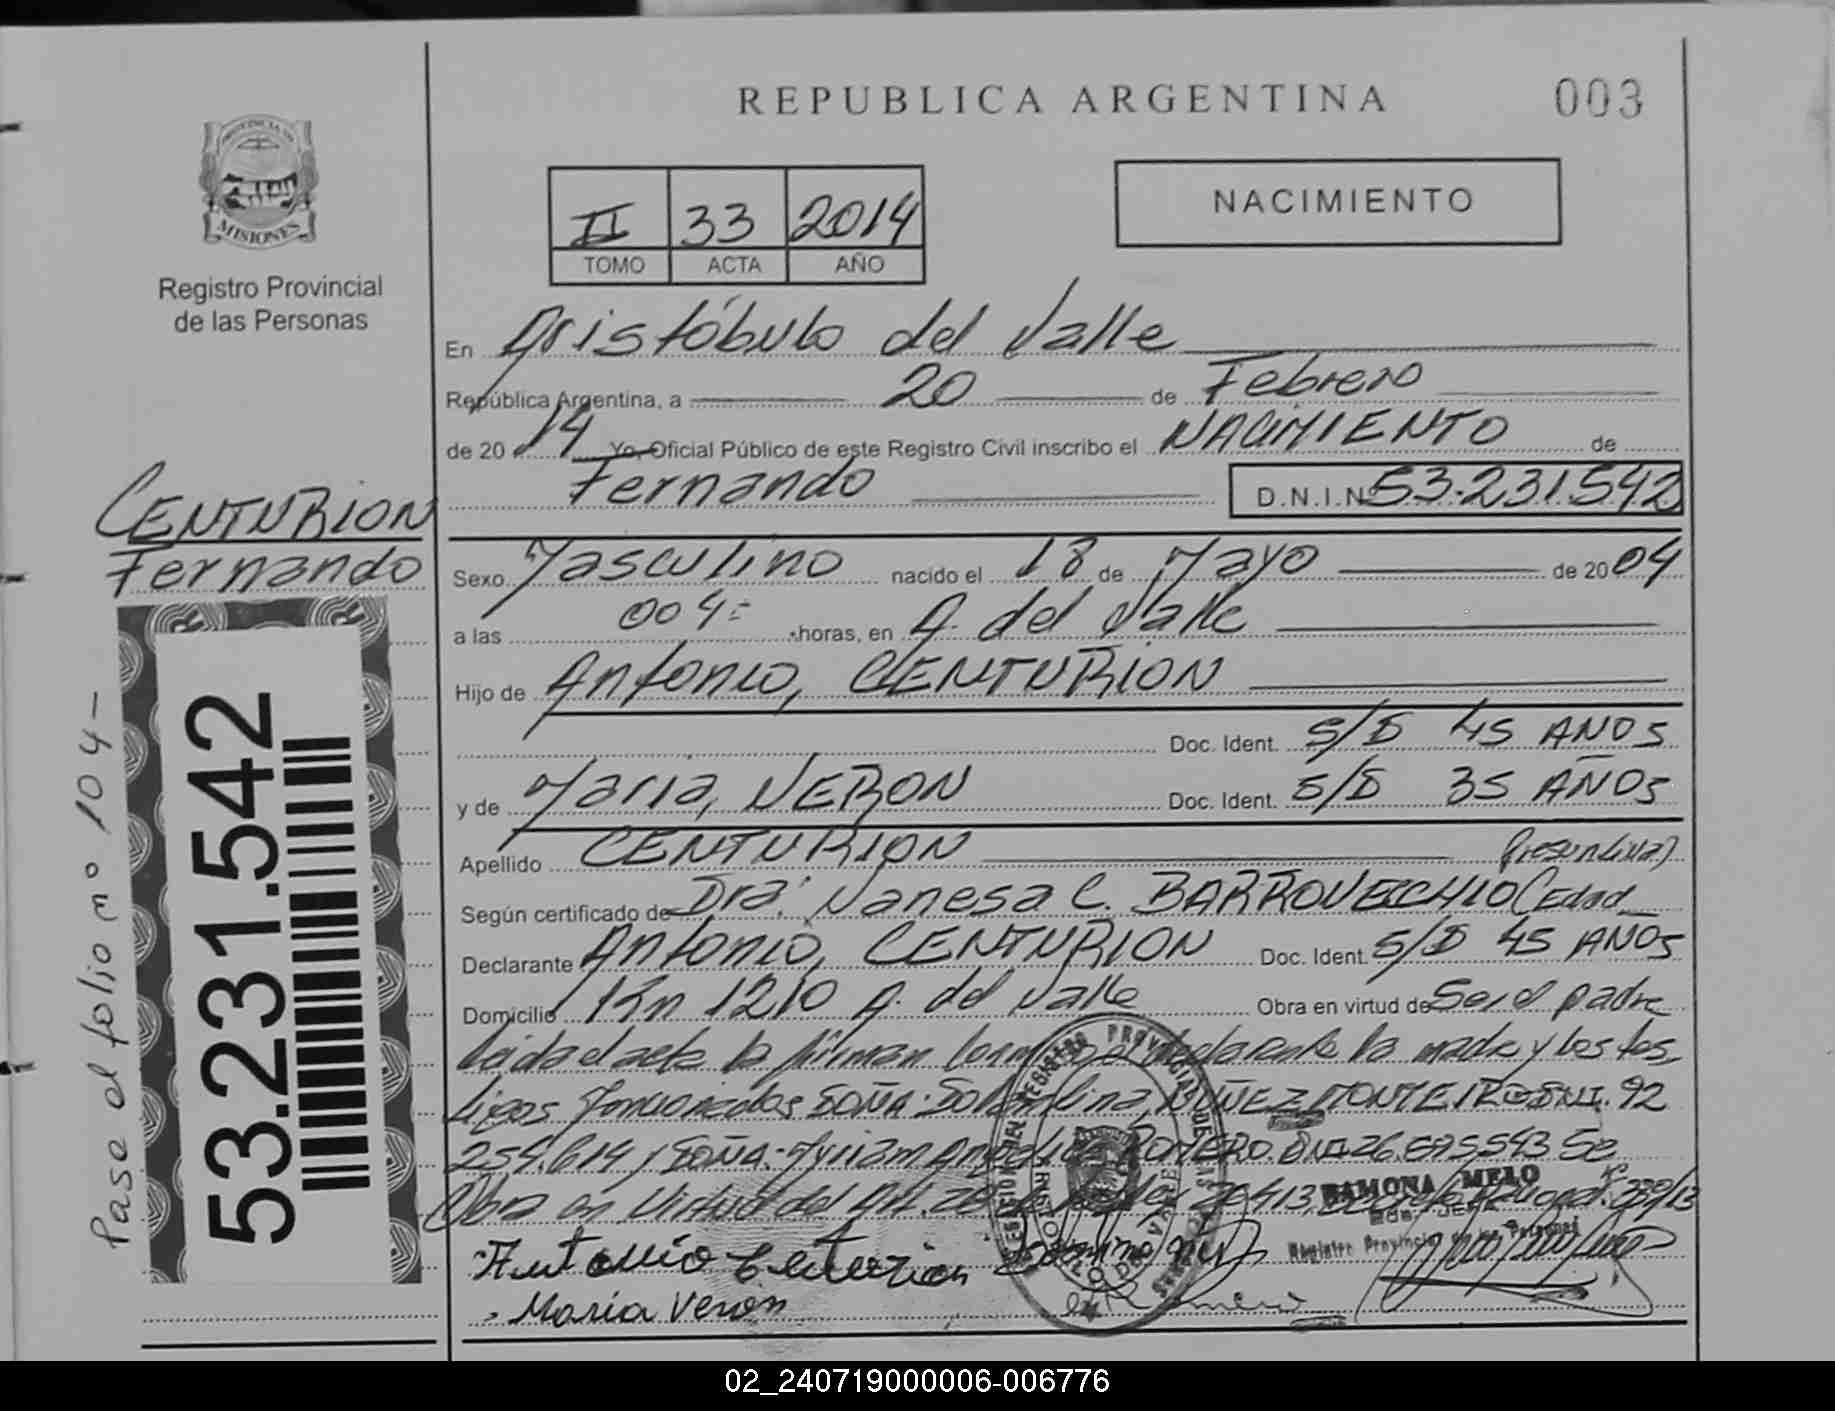 REPUBLICA ARGENTINA
003
PROVINCIA DE
MISIONES
Registro Provincial
de las Personas
II 33 2014
TOMO ACTA AÑO
NACIMIENTO
En Aristóbulo del Valle
República Argentina, a 20 de Febrero
de 20 14 Yo, Oficial Público de este Registro Civil inscribo el NACIMIENTO de
Fernando D.N.I.Nº 53.231.542
CENTURION
Fernando
Sexo Masculino nacido el 18 de Mayo de 20 04
a las 004= horas, en A. del Valle
Hijo de Antonio, CENTURION
Doc. Ident. S/D 45 AÑOS
y de Maria, VERON Doc. Ident. S/D 35 AÑOS
Apellido CENTURION Presuntiva)
Según certificado de Dra. Vanesa C. BARROVECCHIO (Edad
Declarante Antonio, CENTURION Doc. Ident. S/D 45 AÑOS
Domicilio Km 1210 A. del Valle Obra en virtud de Ser el padre
Leida el acta la firman la madre y los tes
tigos DOÑA: NUÑEZ MONTEIRO DNI. 92
254.614 y DOÑA: Miriam ROMERO. DNI 26.695543 Se
Obra en Virtud del Art. 28
RAMONA MELO
JEFA
Registro Provincial de las Personas
Antonio Centurion
Maria Veron
Pase al folio nº 104-
53.231.542
02_240719000006-006776